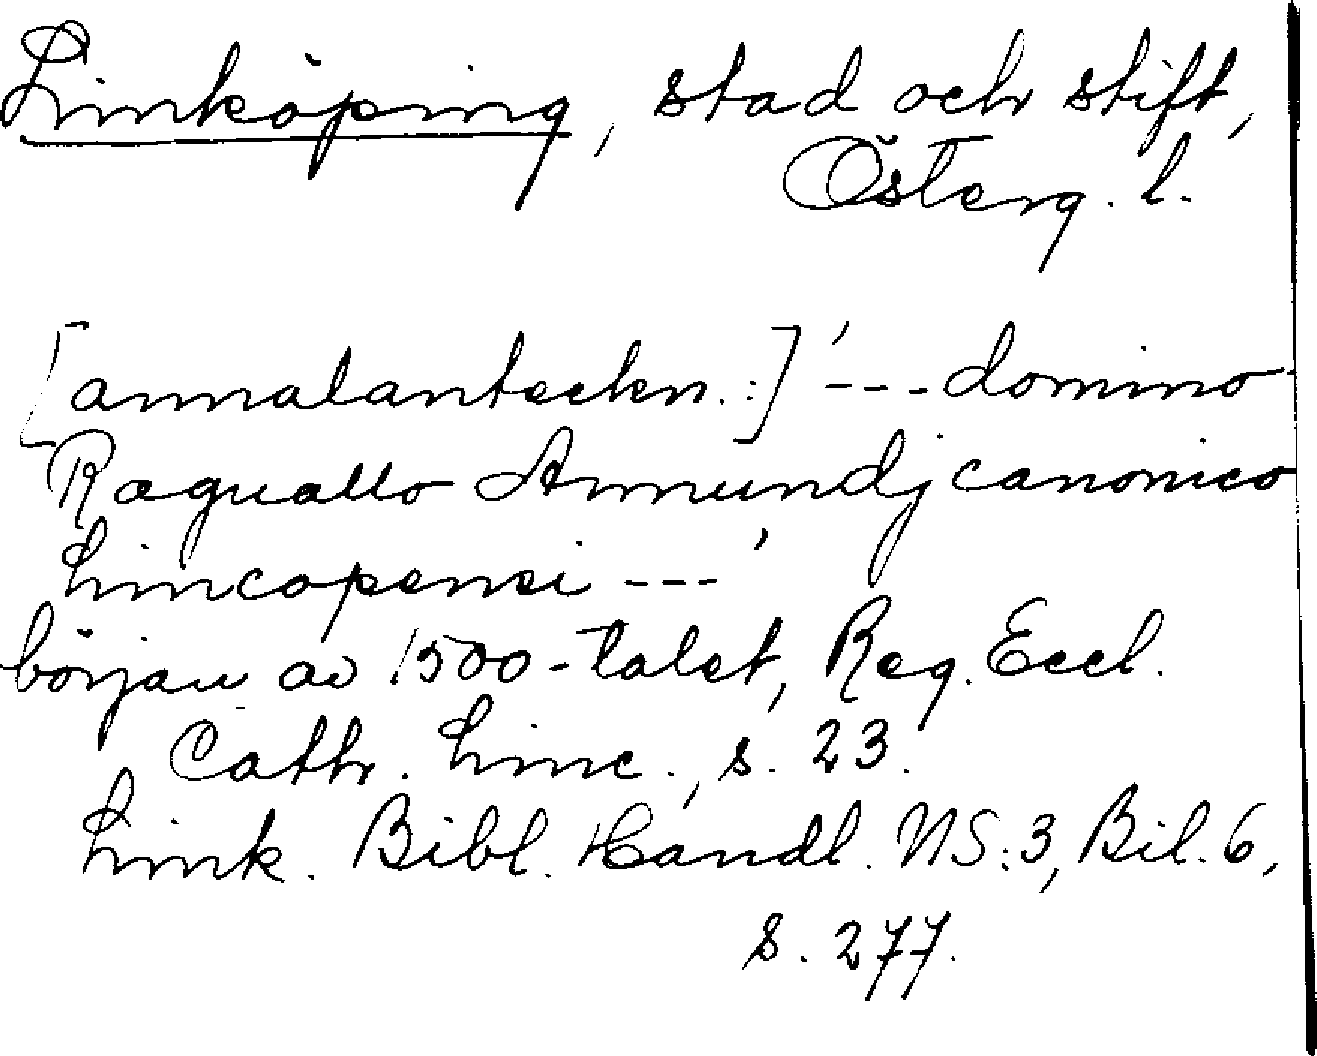 Linköping, stad och stift,
Österg. l.
[annalanteckn.:] '---domino
Raguallo Amundj canonico
Lincopensi ---'
början av 1500-talet, Reg. Eccl.
Cath. Linc., s. 23.
Link. Bibl. Handl. NS:3, Bil. 6,
s. 277.